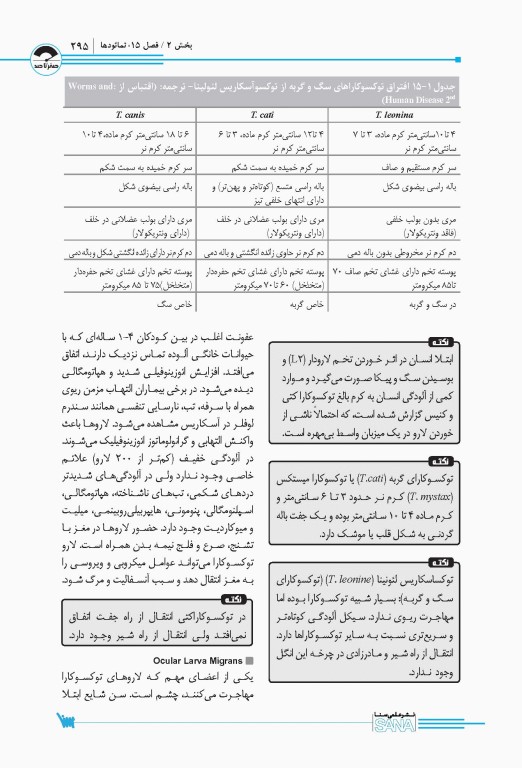 بخش ۲ / فصل ۱۵. نماتودها | ۲۹۵
صفر تا صد
جدول ۱-۱۵ افتراق توکسوکاراهای سگ و گربه از توکسوآسکاریس لئونینا- ترجمه: (اقتباس از :Worms and
Human Disease 2nd)
T. leonina	T. cati	T. canis
۴ تا۱۰سانتی‌متر کرم ماده، ۳ تا ۷ سانتی‌متر کرم نر	۴ تا۱۲ سانتی‌متر کرم ماده، ۳ تا ۶ سانتی‌متر کرم نر	۶ تا ۱۸ سانتی‌متر کرم ماده،۴ تا۱۰ سانتی‌متر کرم نر
سر کرم مستقیم و صاف	سر کرم خمیده به سمت شکم	سر کرم خمیده به سمت شکم
باله راسی بیضوی شکل	باله راسی متسع (کوتاه‌تر و پهن‌تر) و دارای انتهای خلفی تیز	باله راسی بیضوی شکل
مری بدون بولب خلفی (فاقد ونتریکولار)	مری دارای بولب عضلانی در خلف (دارای ونتریکولار)	مری دارای بولب عضلانی در خلف (دارای ونتریکولار)
دم کرم نر مخروطی بدون باله دمی	دم کرم نر حاوی زائده انگشتی و باله دمی	دم کرم نر دارای زائده انگشتی شکل و باله دمی
پوسته تخم دارای غشای تخم صاف ۷۰ تا۸۵ میکرومتر	پوسته تخم دارای غشای تخم حفره‌دار (متخلخل) ۶۰ تا ۷۰ میکرومتر	پوسته تخم دارای غشای تخم حفره‌دار (متخلخل)۷۵ تا ۸۵ میکرومتر
در سگ و گربه	خاص گربه	خاص سگ
نکته
ابتلا انسان در اثر خوردن تخم لارودار (L۲) و
بوسیدن سگ و پیکا صورت می‌گیرد و موارد
کمی از آلودگی انسان به کرم بالغ توکسوکارا کتی
و کنیس گزارش شده است، که احتمالاً ناشی از
خوردن لارو در یک میزبان واسط بی‌مهره است.
نکته
توکسوکارای گربه (T.cati) یا توکسوکارا میستکس
(T. mystax) کرم نر حدود ۳ تا ۶ سانتی‌متر و
کرم ماده ۴ تا ۱۰ سانتی‌متر بوده و یک جفت باله
گردنی به شکل قلب یا موشک دارد.
نکته
توکساسکاریس لئونینا (T. leonine) (توکسوکارای
سگ و گربه)؛ بسیار شبیه توکسوکارا بوده اما
مهاجرت ریوی ندارد. سیکل آلودگی کوتاه‌تر
و سریع‌تری نسبت به سایر توکسوکاراها دارد.
انتقال از راه شیر و مادرزادی در چرخه این انگل
وجود ندارد.
عفونت اغلب در بین کودکان ۴-۱ ساله‌ای که با
حیوانات خانگی آلوده تماس نزدیک دارند، اتفاق
می‌افتد. افزایش ائوزینوفیلی شدید و هپاتومگالی
دیده می‌شود. در برخی بیماران التهاب مزمن ریوی
همراه با سرفه، تب، نارسایی تنفسی همانند سندرم
لوفلر در آسکاریس مشاهده می‌شود. لاروها باعث
واکنش التهابی و گرانولوماتوز ائوزینوفیلیک می‌شوند.
در آلودگی خفیف (کم‌تر از ۲۰۰ لارو) علائم
خاصی وجود ندارد ولی در آلودگی‌های شدیدتر
دردهای شکمی، تب‌های ناشناخته، هپاتومگالی،
اسپلنومگالی، پنومونی، هایپربیلی‌روبینمی، میلیت
و میوکاردیت وجود دارد. حضور لاروها در مغز با
تشنج، صرع و فلج نیمه بدن همراه است. لارو
توکسوکارا می‌تواند عوامل میکروبی و ویروسی را
به مغز انتقال دهد و سبب آنسفالیت و مرگ شود.
نکته
در توکسوکاراکتی انتقال از راه جفت اتفاق
نمی‌افتد ولی انتقال از راه شیر وجود دارد.
Ocular Larva Migrans
یکی از اعضای مهم که لاروهای توکسوکارا
مهاجرت می‌کنند، چشم است. سن شایع ابتلا
نشر علمی سنا
SANA